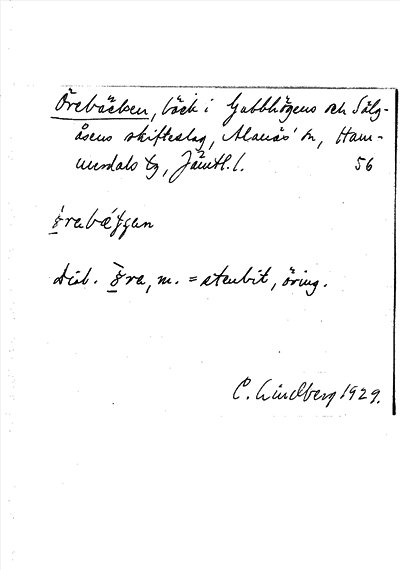 Örebäcken, bäck i Gubbhögens och Sälg-
åsens skifteslag, Alanäs' sn, Ham-
merdals tg, Jämtl. l. 56
ørabæʄʄan
Dial. øra, m. = stenbit, öring.
C. Lindberg 1929.